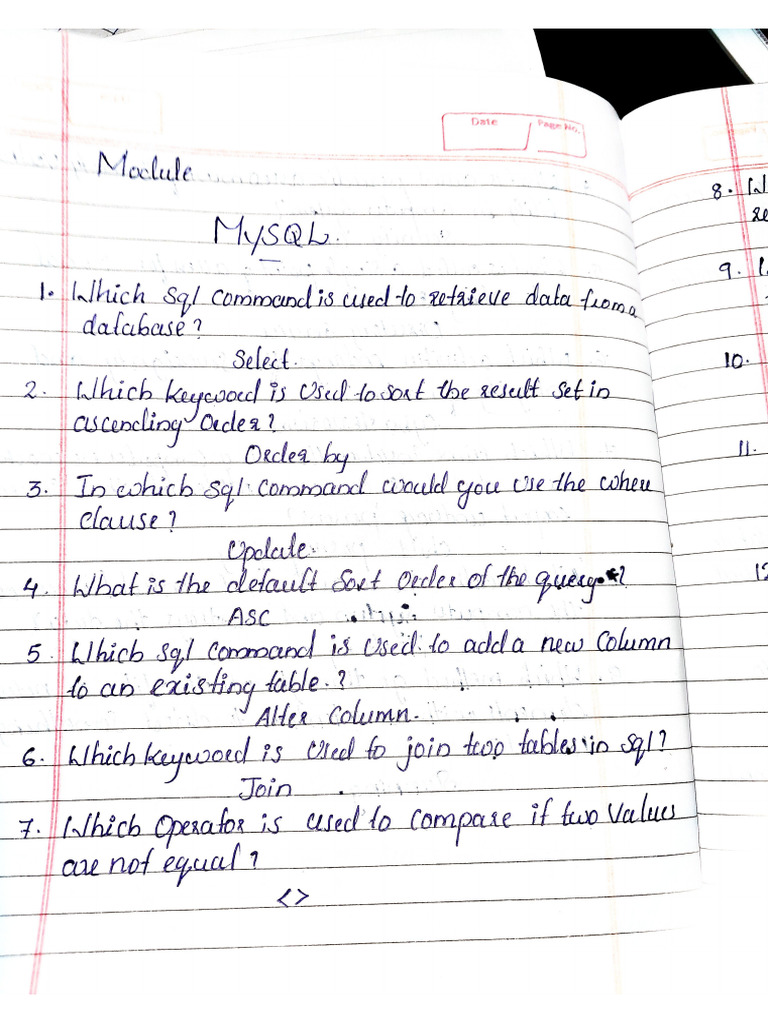 Date Page No.
Module
MySQL.
1. Which Sql command is used to retrieve data from a
database?
Select.
2. Which keyword is used to sort the result set in
ascending Order?
Order by
3. In which Sql command would you use the where
clause?
Update.
4. What is the default Sort Order of the query?
ASC
5 Which Sql command is used to add a new Column
to an existing table.?
Alter Column.
6. Which keyword is used to join two tables in Sql?
Join
7. Which Operator is used to compare if two Values
are not equal?
<>
8.
9.
10.
11.